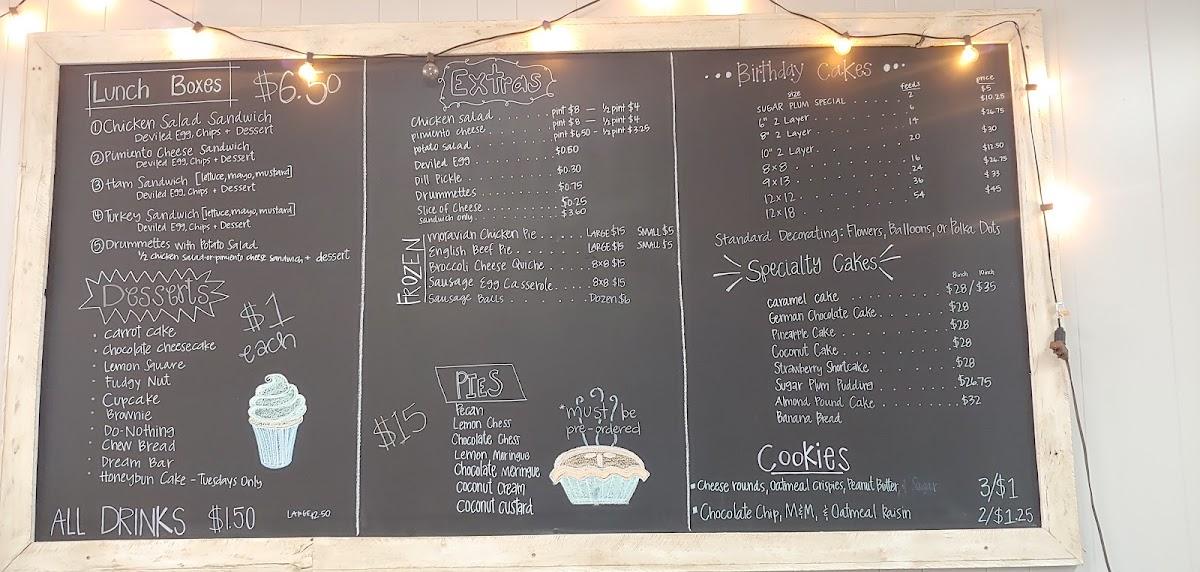 Lunch Boxes $6.50
① Chicken Salad Sandwich
Deviled Egg, Chips + Dessert
② Pimiento Cheese Sandwich
Deviled Egg, Chips + Dessert
③ Ham Sandwich [lettuce, mayo, mustard]
Deviled Egg, Chips + Dessert
④ Turkey Sandwich [lettuce, mayo, mustard]
Deviled Egg, Chips + Dessert
⑤ Drummettes with Potato Salad
½ chicken salad or pimiento cheese sandwich, + dessert
Desserts
$1 each
• Carrot Cake
• Chocolate Cheesecake
• Lemon Square
• Fudgy Nut
• Cupcake
• Brownie
• Do-Nothing
• Chew Bread
• Dream Bar
• Honeybun Cake - Tuesdays Only
ALL DRINKS $1.50 LARGE $2.50
Extras
Chicken Salad ........ pint $8 — ½ pint $4
pimiento cheese ........ pint $8 — ½ pint $4
potato salad ........ pint $6.50 - ½ pint $3.25
Deviled Egg ........ $0.50
Dill Pickle ........ $0.30
Drummettes ........ $0.75
Slice of Cheese ........ $0.25
Sandwich only ........ $3.60
FROZEN
Moravian Chicken Pie ..... LARGE $15 SMALL $5
English Beef Pie ..... LARGE $15 SMALL $5
Broccoli Cheese Quiche ..... 8x8 $15
Sausage Egg Casserole ..... 8x8 $15
Sausage Balls ..... Dozen $6
PIES
$15
Pecan
Lemon Chess
Chocolate Chess
Lemon Meringue
Chocolate Meringue
Coconut Cream
Coconut Custard
*must be
pre-ordered
••• Birthday Cakes •••
size feeds price
SUGAR PLUM SPECIAL ..... 2 $5
6" 2 Layer ..... 6 $10.25
8" 2 Layer ..... 14 $26.75
10" 2 Layer ..... 20 $30
8x8 ..... 16 $12.50
9x13 ..... 24 $26.75
12x12 ..... 36 $33
12x18 ..... 54 $45
Standard Decorating: Flowers, Balloons, or Polka Dots
Specialty Cakes
8inch 10inch
Caramel Cake ..... $28/$35
German Chocolate Cake ..... $28
Pineapple Cake ..... $28
Coconut Cake ..... $28
Strawberry Shortcake ..... $28
Sugar Plum Pudding ..... $26.75
Almond Pound Cake ..... $32
Banana Bread
Cookies
• Cheese rounds, Oatmeal Crispies, Peanut Butter, & Sugar 3/$1
• Chocolate Chip, M&M, & Oatmeal Raisin 2/$1.25